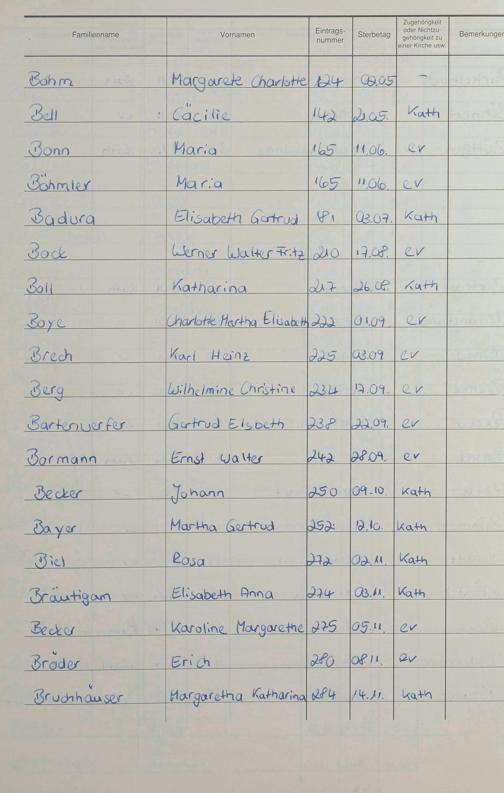 Familienname Vornamen Eintrags- nummer Sterbetag Zugehörigkeit oder Nichtzu- gehörigkeit zu einer Kirche usw. Bemerkungen
Bohm Margarete Charlotte 124 09.05
Bell Cäcilie 142 21.05. Kath
Bonn Maria 165 11.06. ev
Böhmler Maria 165 11.06. ev
Badura Elisabeth Gertrud 181 03.07. Kath
Bock Werner Walter Fritz 210 17.08. ev
Boll Katharina 217 26.08 Kath
Boye Charlotte Martha Elisabeth 222 01.09 ev
Brech Karl Heinz 225 03.09 ev
Berg Wilhelmine Christine 234 17.09. ev
Bartenwerfer Gertrud Elsbeth 238 22.09. ev
Bormann Ernst Walter 242 28.09. ev
Becker Johann 250 09.10 Kath
Bayer Martha Gertrud 252 12.10. Kath
Biel Rosa 272 02.11. Kath
Bräutigam Elisabeth Anna 274 03.11. Kath
Becker Karoline Margarethe 275 05.11. ev
Bröder Erich 280 08.11. ev
Bruchhäuser Margaretha Katharina 284 14.11. Kath